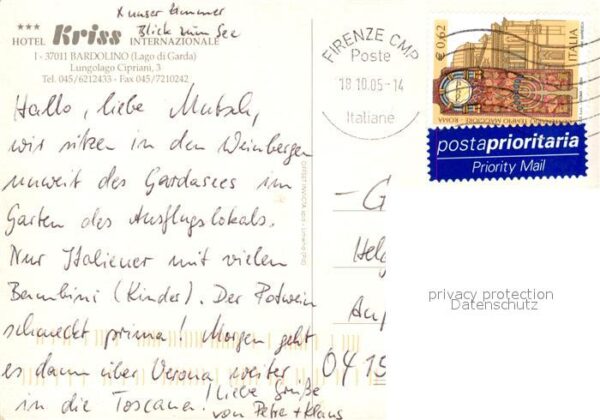 x unser Zimmer
Blick zum See
***
HOTEL Kriss INTERNAZIONALE
I - 37011 BARDOLINO (Lago di Garda)
Lungolago Cipriani, 3
Tel. 045/6212433 - Fax 045/7210242
Hallo, liebe Mutsch,
wir sitzen in den Weinbergen
unweit des Gardasees im
Garten des Ausflugslokals.
Nur Italiener mit vielen
Bambini (Kinder). Der Rotwein
schmeckt prima! Morgen geht
es dann über Verona weiter
in die Toscana! Liebe Grüße
von Petra + Klaus
FIRENZE CMP
Poste
18.10.05-14
Italiane
€ 0,62
ITALIA
TEMPIO MAGGIORE - ROMA
postaprioritaria
Priority Mail
- G
Helg
Au
0415
privacy protection
Datenschutz